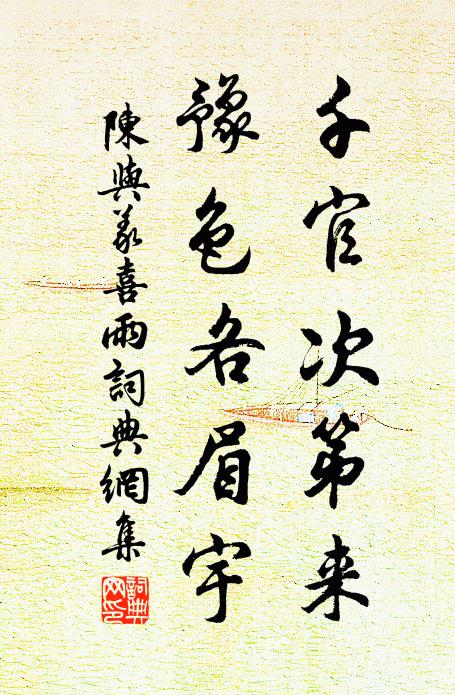 千官次第来
豫色各眉宇
陳與義喜雨詞典網集
詞典网印